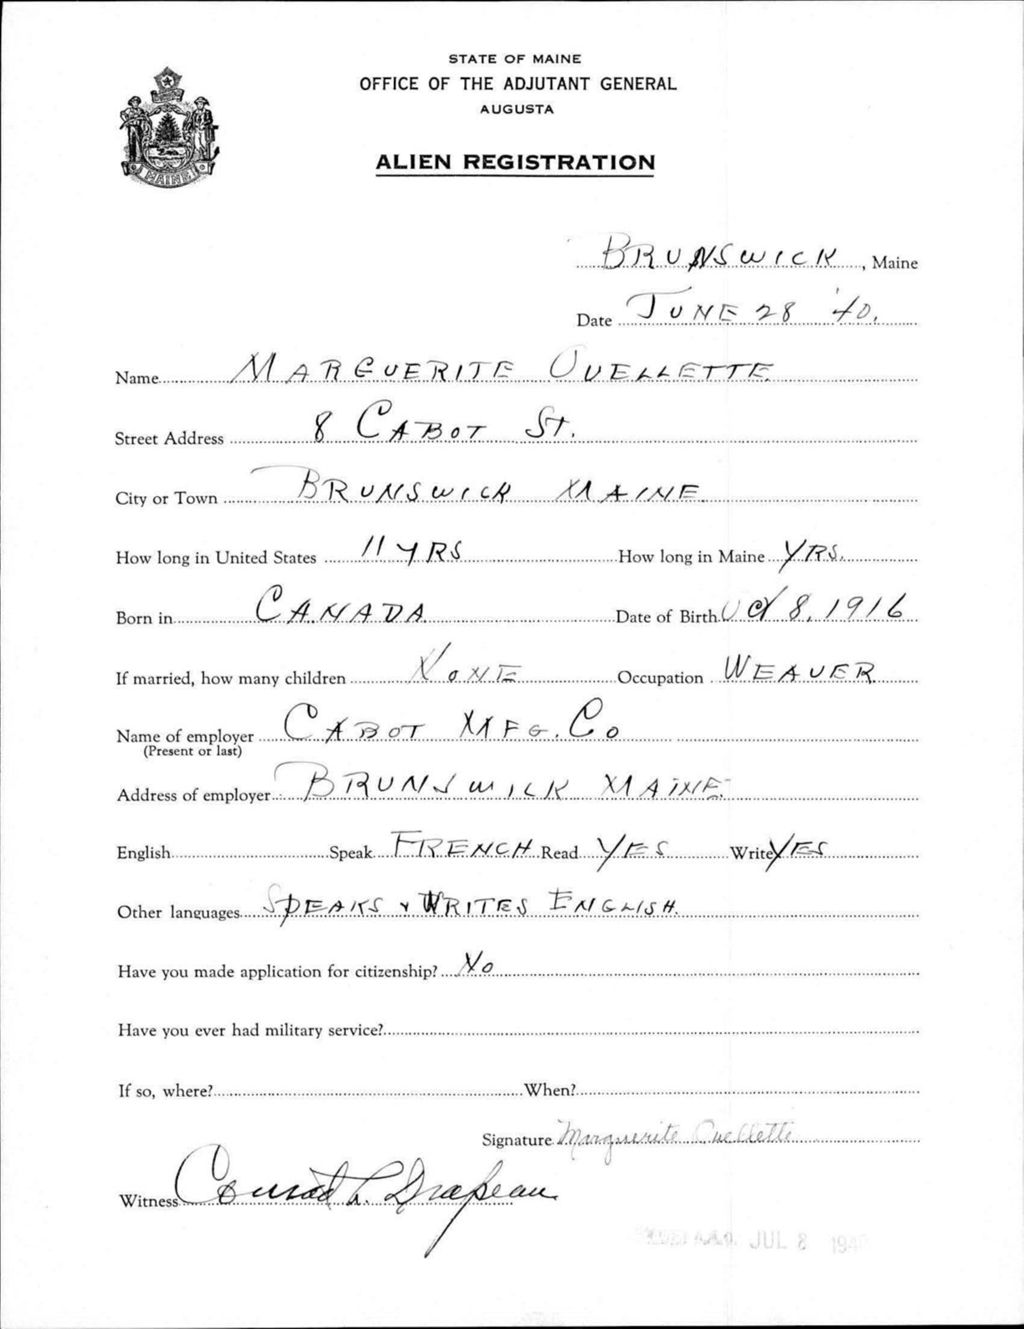 STATE OF MAINE
OFFICE OF THE ADJUTANT GENERAL
AUGUSTA
ALIEN REGISTRATION
MAINE
BRUNSWICK, Maine
Date JUNE 28 '40.
Name MARGUERITE OUELLETTE
Street Address 8 CABOT ST.
City or Town BRUNSWICK MAINE
How long in United States 11 YRS How long in Maine YRS.
Born in CANADA Date of Birth Oct 8, 1916
If married, how many children NONE Occupation WEAVER
Name of employer CABOT MFG. Co
(Present or last)
Address of employer BRUNSWICK MAINE
English Speak FRENCH Read YES Write YES
Other languages SPEAKS & WRITES ENGLISH.
Have you made application for citizenship? No
Have you ever had military service?
If so, where? When?
Signature Marguerite Ouellette
Witness Conrad L. Drapeau
A.G.O. JUL 8 1940